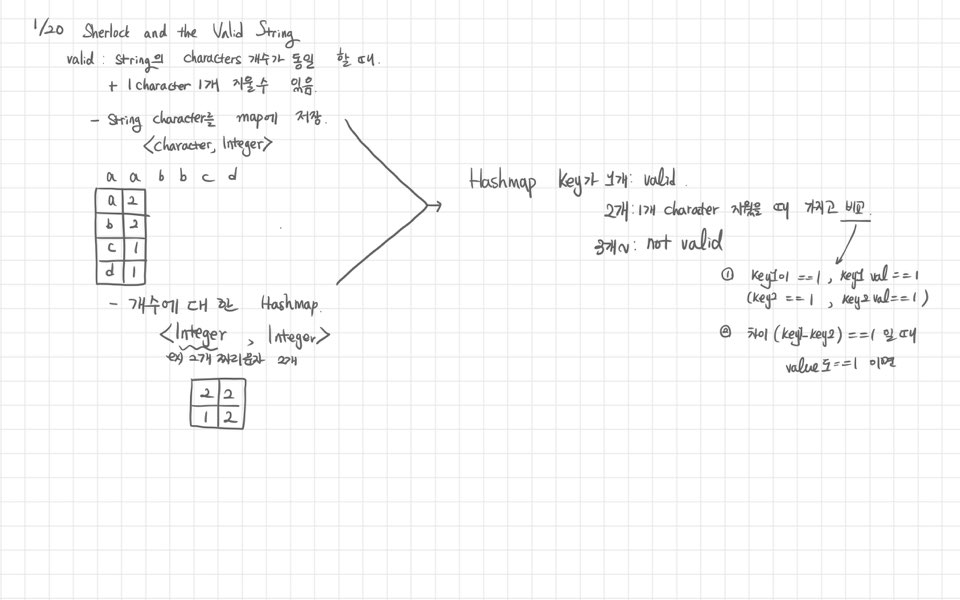 1/20 Sherlock and the Valid String
valid : string의 characters 개수가 동일 할 때.
+ 1 character 1개 지울 수 있음.
- String character를 map에 저장.
<character, Integer>
a a b b c d
a 2
b 2
c 1
d 1
- 개수에 대한 Hashmap.
<Integer, Integer>
ex) 2개 짜리 문자 2개
2 2
1 2
Hashmap Key가 1개: valid.
2개: 1개 character 지웠을 때 가지고 비교.
3개~: not valid
① key1이 ==1, key1 val ==1
(key2 ==1, key2 val==1)
② 차이 (key1-key2) ==1 일 때
value도 ==1 이면